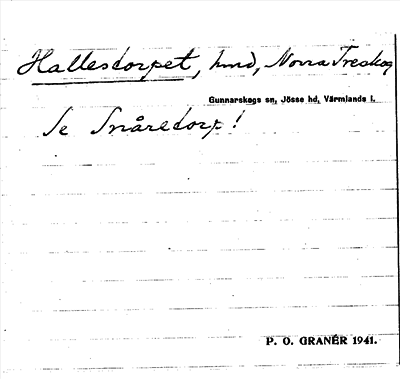 Hallestorpet, hmd, Norra Treskog
Gunnarskogs sn, Jösse hd, Värmlands l.
Se Snåretorp!
P. O. GRANÉR 1941.